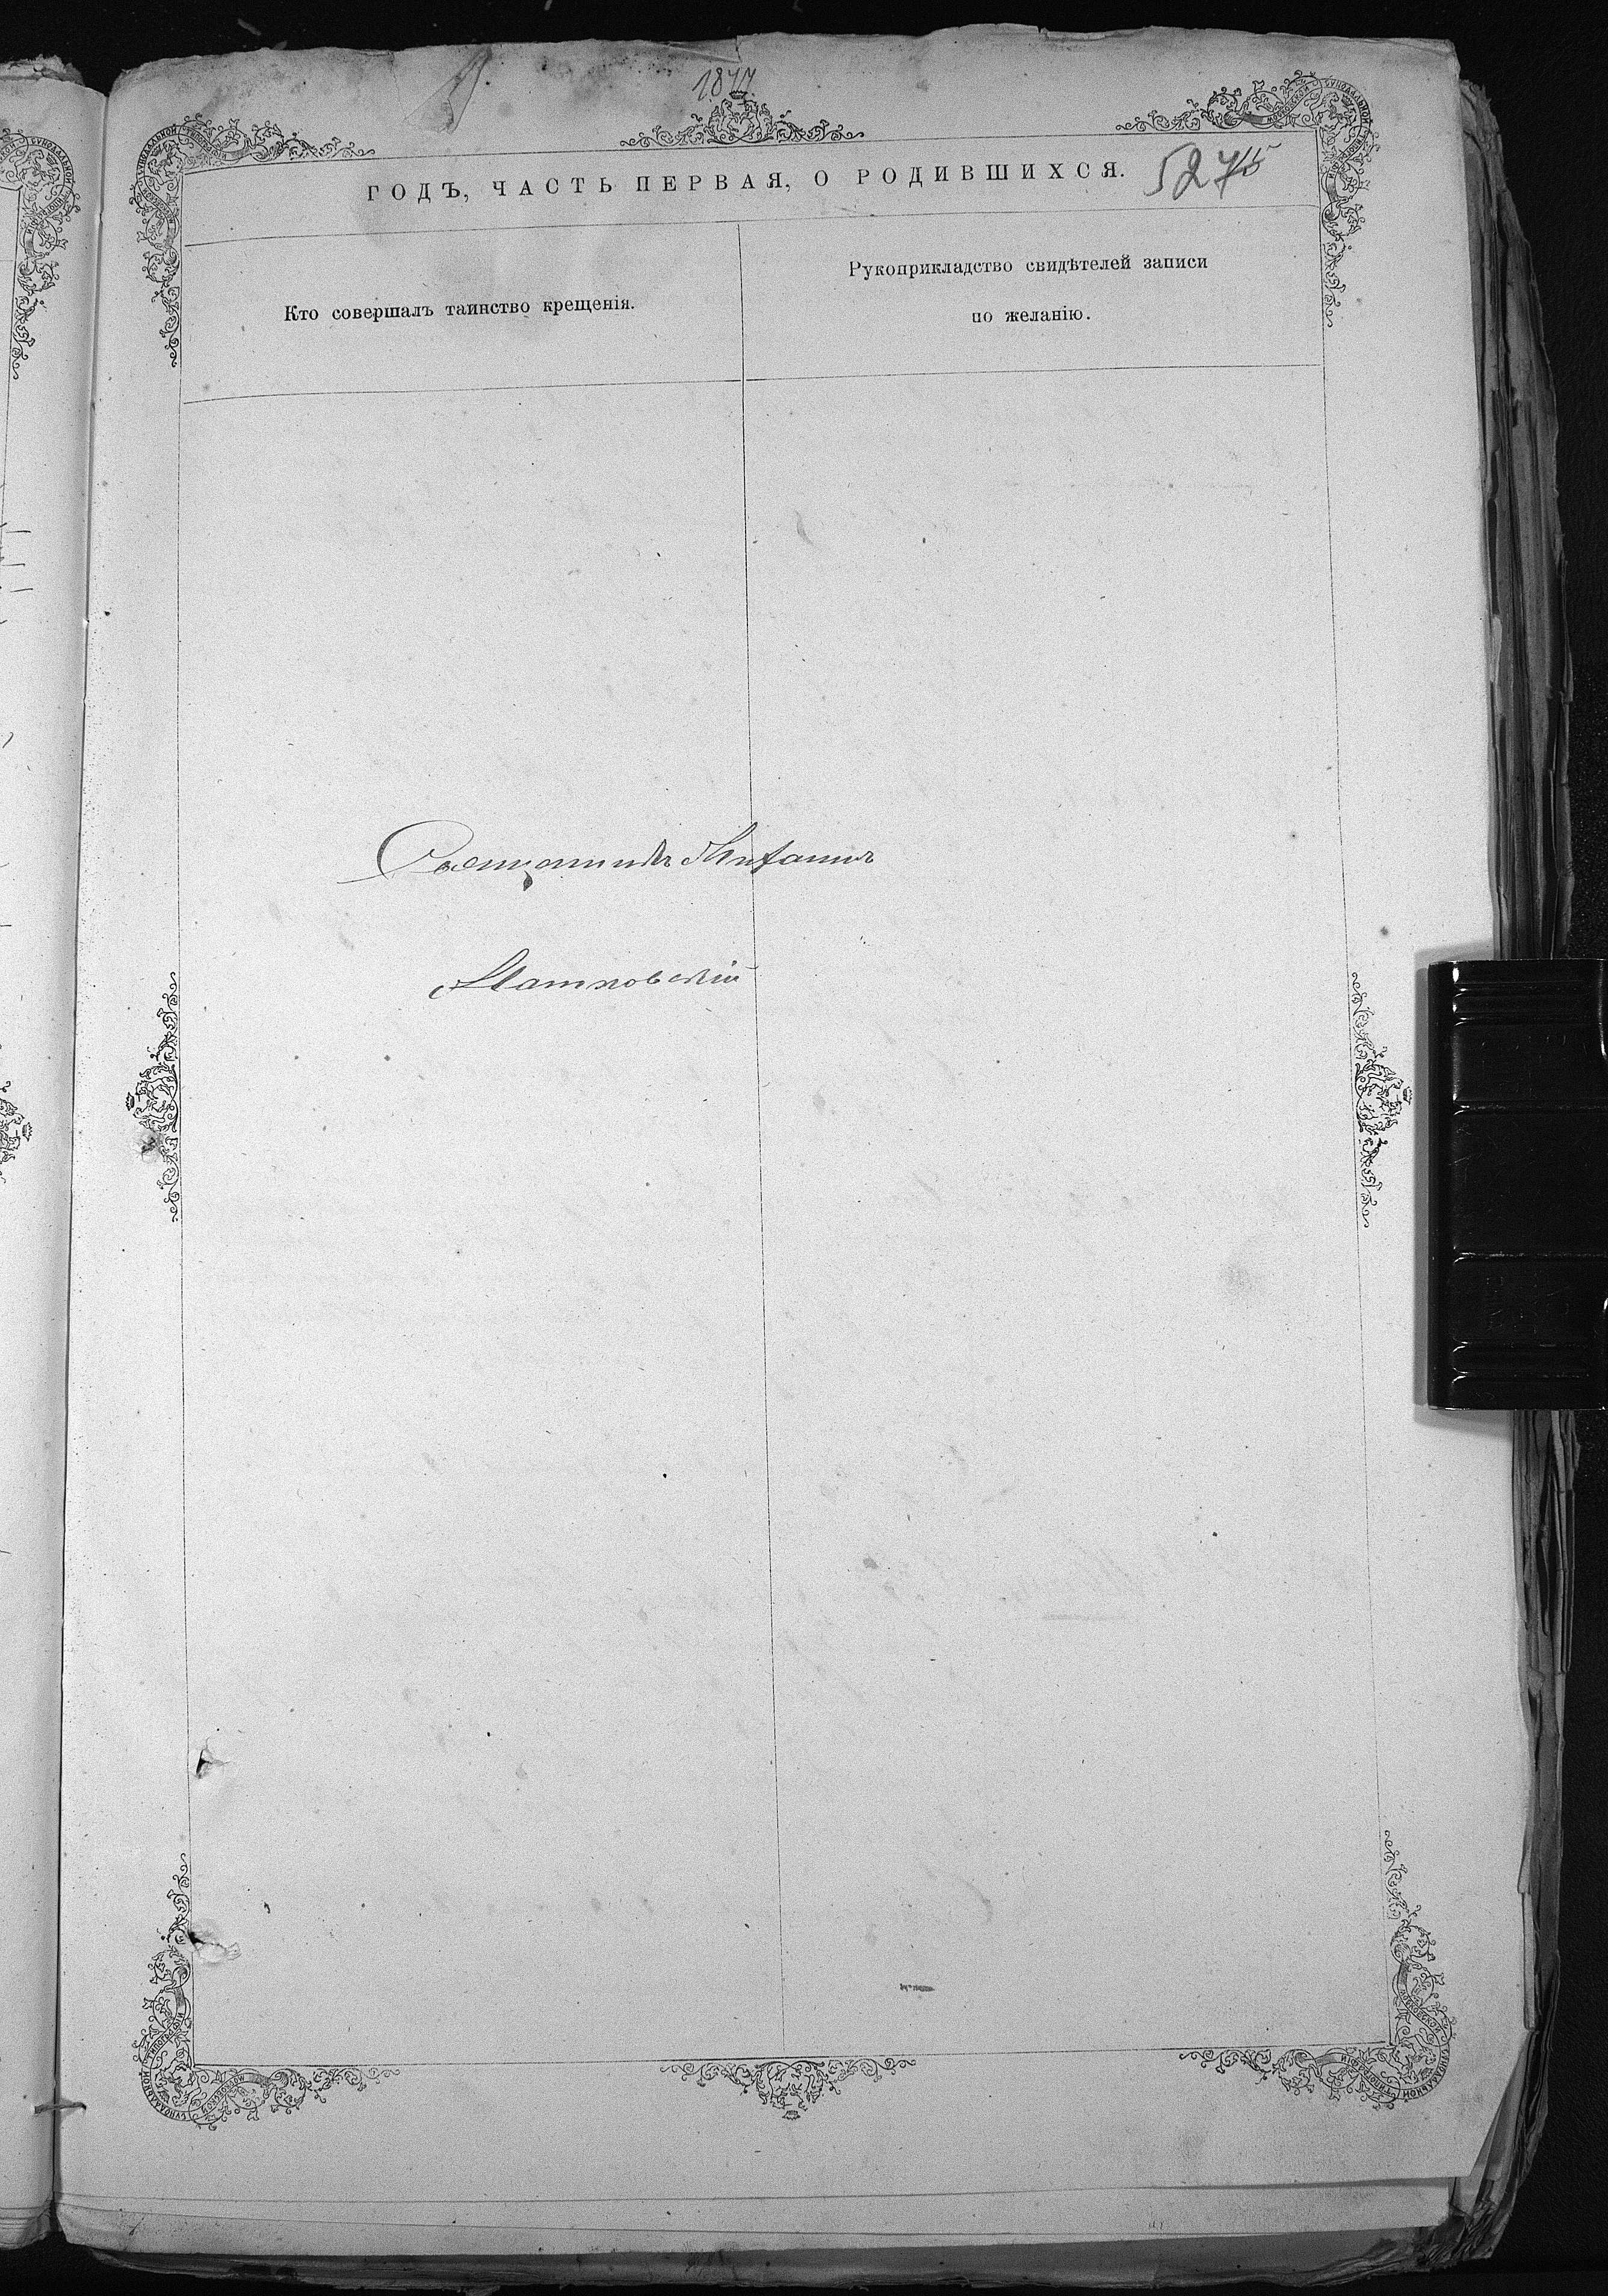 1877.
ГОДЪ, ЧАСТЬ ПЕРВАЯ, О РОДИВШИХСЯ.
Кто совершалъ таинство крещенія.
Рукоприкладство свидѣтелей записи
по желанію.
Священникъ Михаилъ